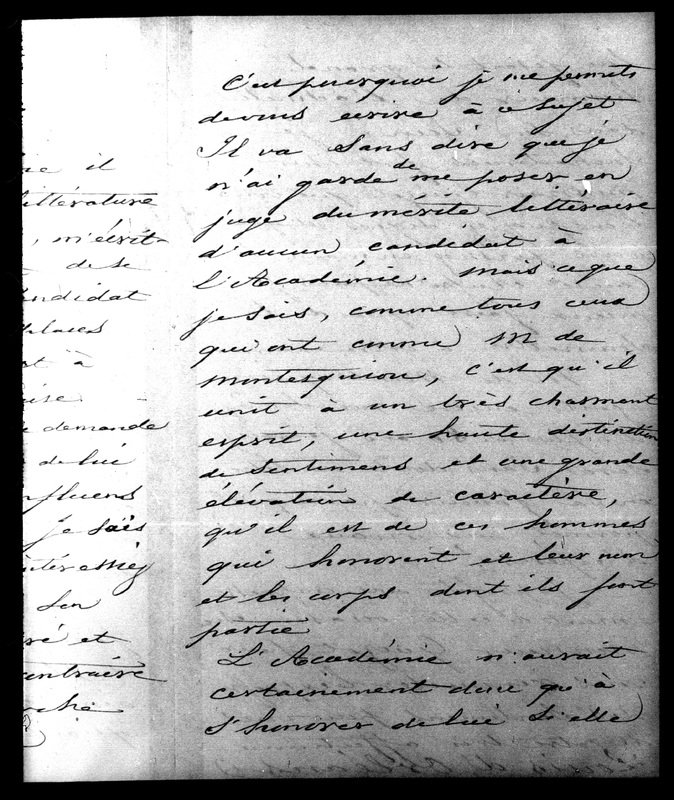 ne il
littérature
, m'écrit-
de se
candidat
places
st à
ise.
demande
de lui
influens
je sais
intéressiez
son
ré et
contraire
rche
C'est pourquoi je me permets
de vous écrire à ce sujet
Il va sans dire que je
n'ai garde de me poser en
juge du mérite littéraire
d'aucun candidat à
l'Académie. mais ce que
je sais, comme tous ceux
qui ont connu M de
montesquiou, c'est qu'il
unit à un très charmant
esprit, une haute distinction
de sentimens et une grande
élévation de caractère,
qu'il est de ces hommes
qui honorent et leur nom
et les corps dont ils font
partie
L'Académie n'aurait
certainement donc qu'à
s'honorer de lui si elle